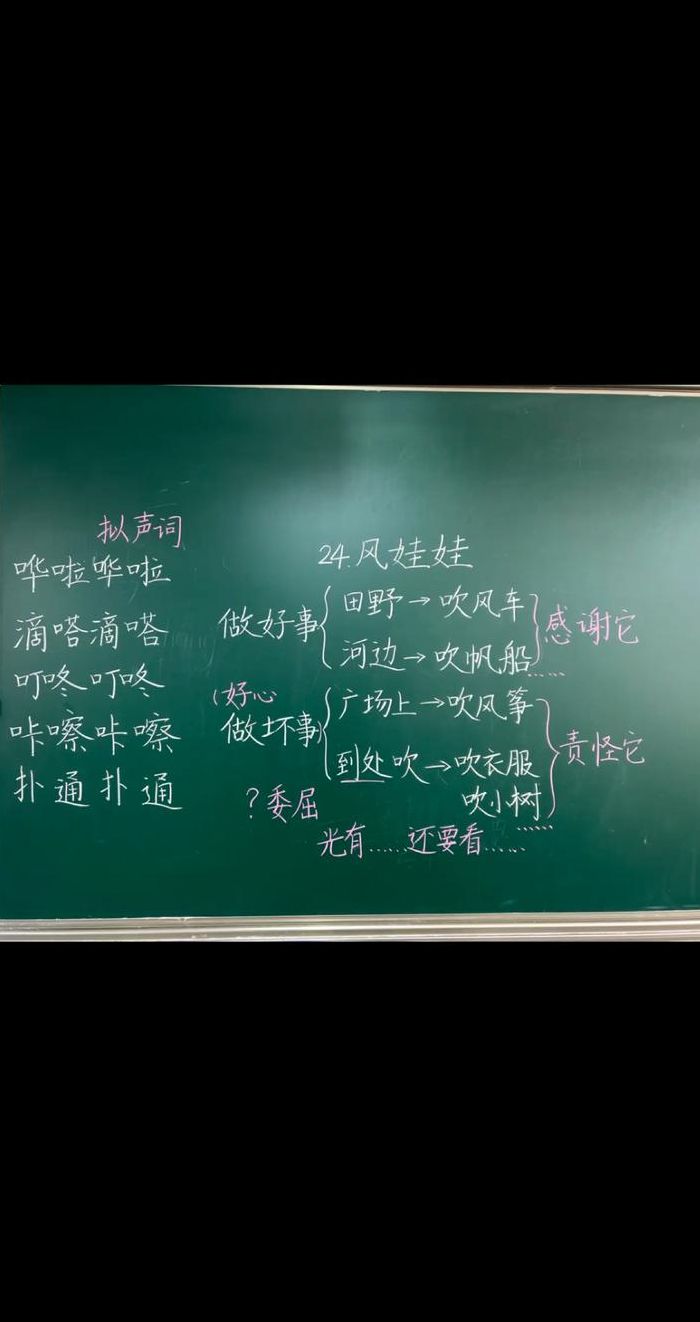 拟声词
哗啦哗啦
滴嗒滴嗒
叮咚叮咚
咔嚓咔嚓
扑通扑通
24.风娃娃
做好事{田野→吹风车
河边→吹帆船……}感谢它
(好心
做坏事){广场上→吹风筝
到处吹→吹衣服
吹小树……}责怪它
?委屈
光有……还要看……